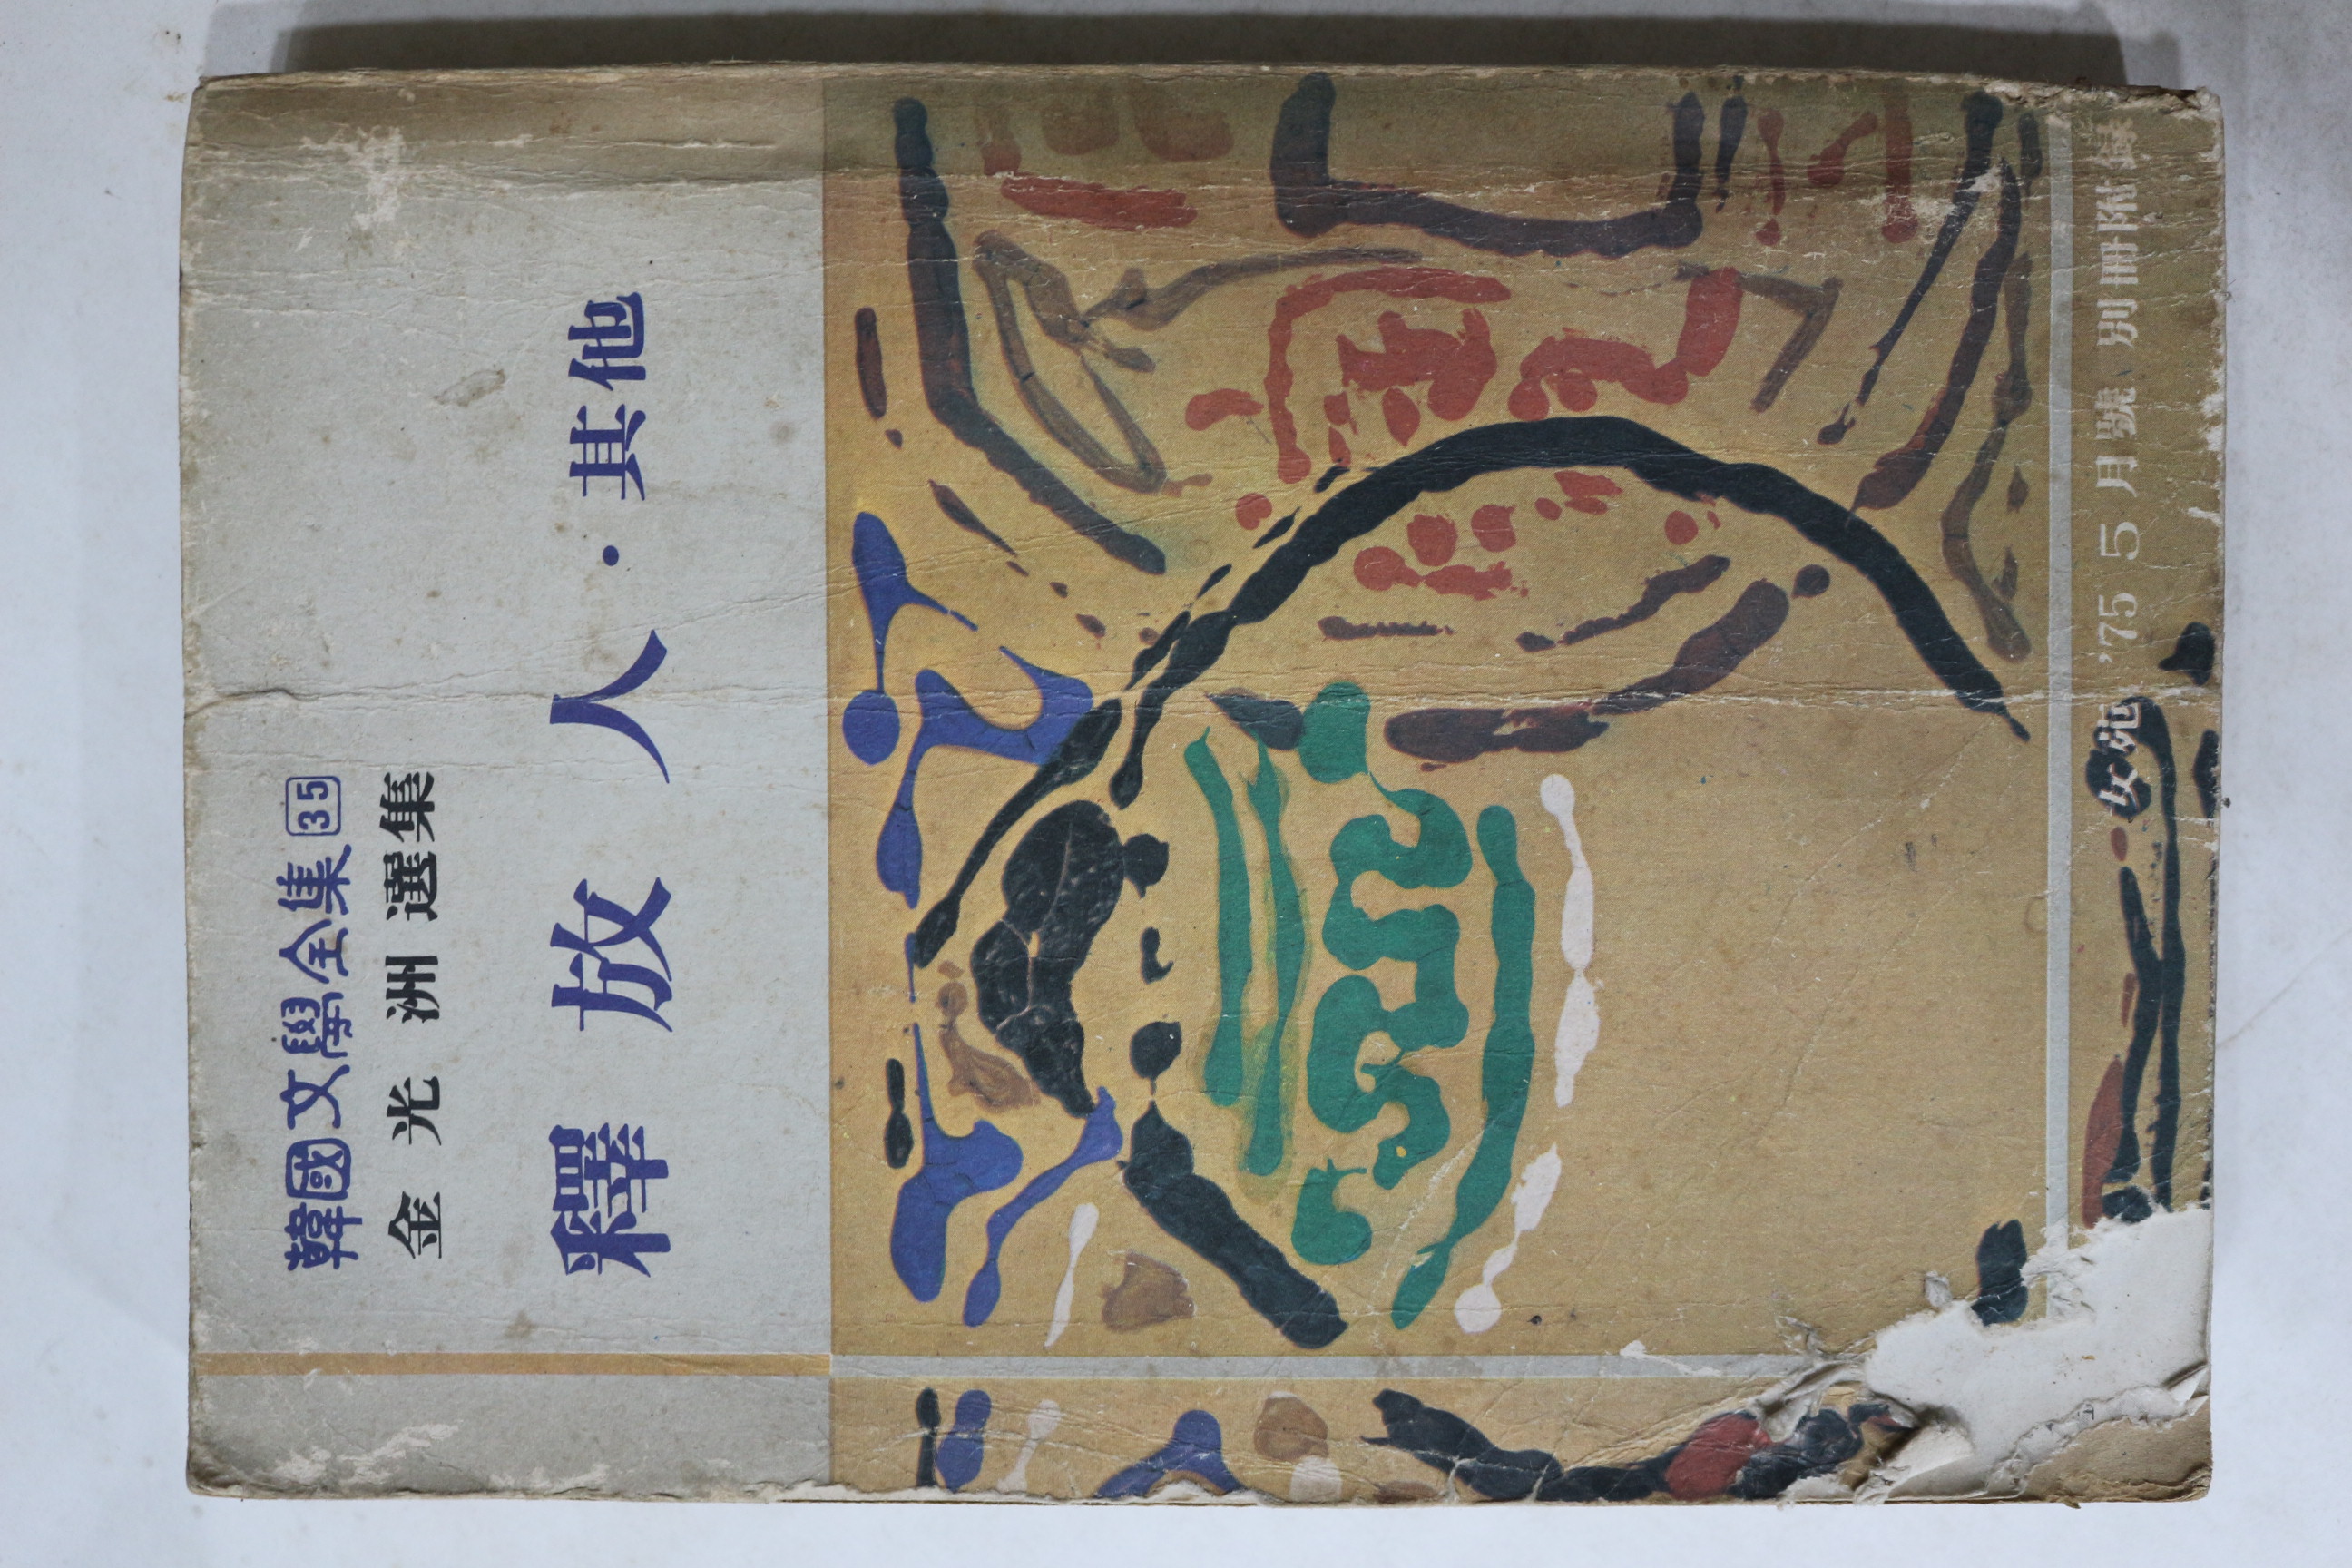 韓國文學全集 35
金光洲選集
釋放人·其他
女苑 '75 5月號 別冊附錄